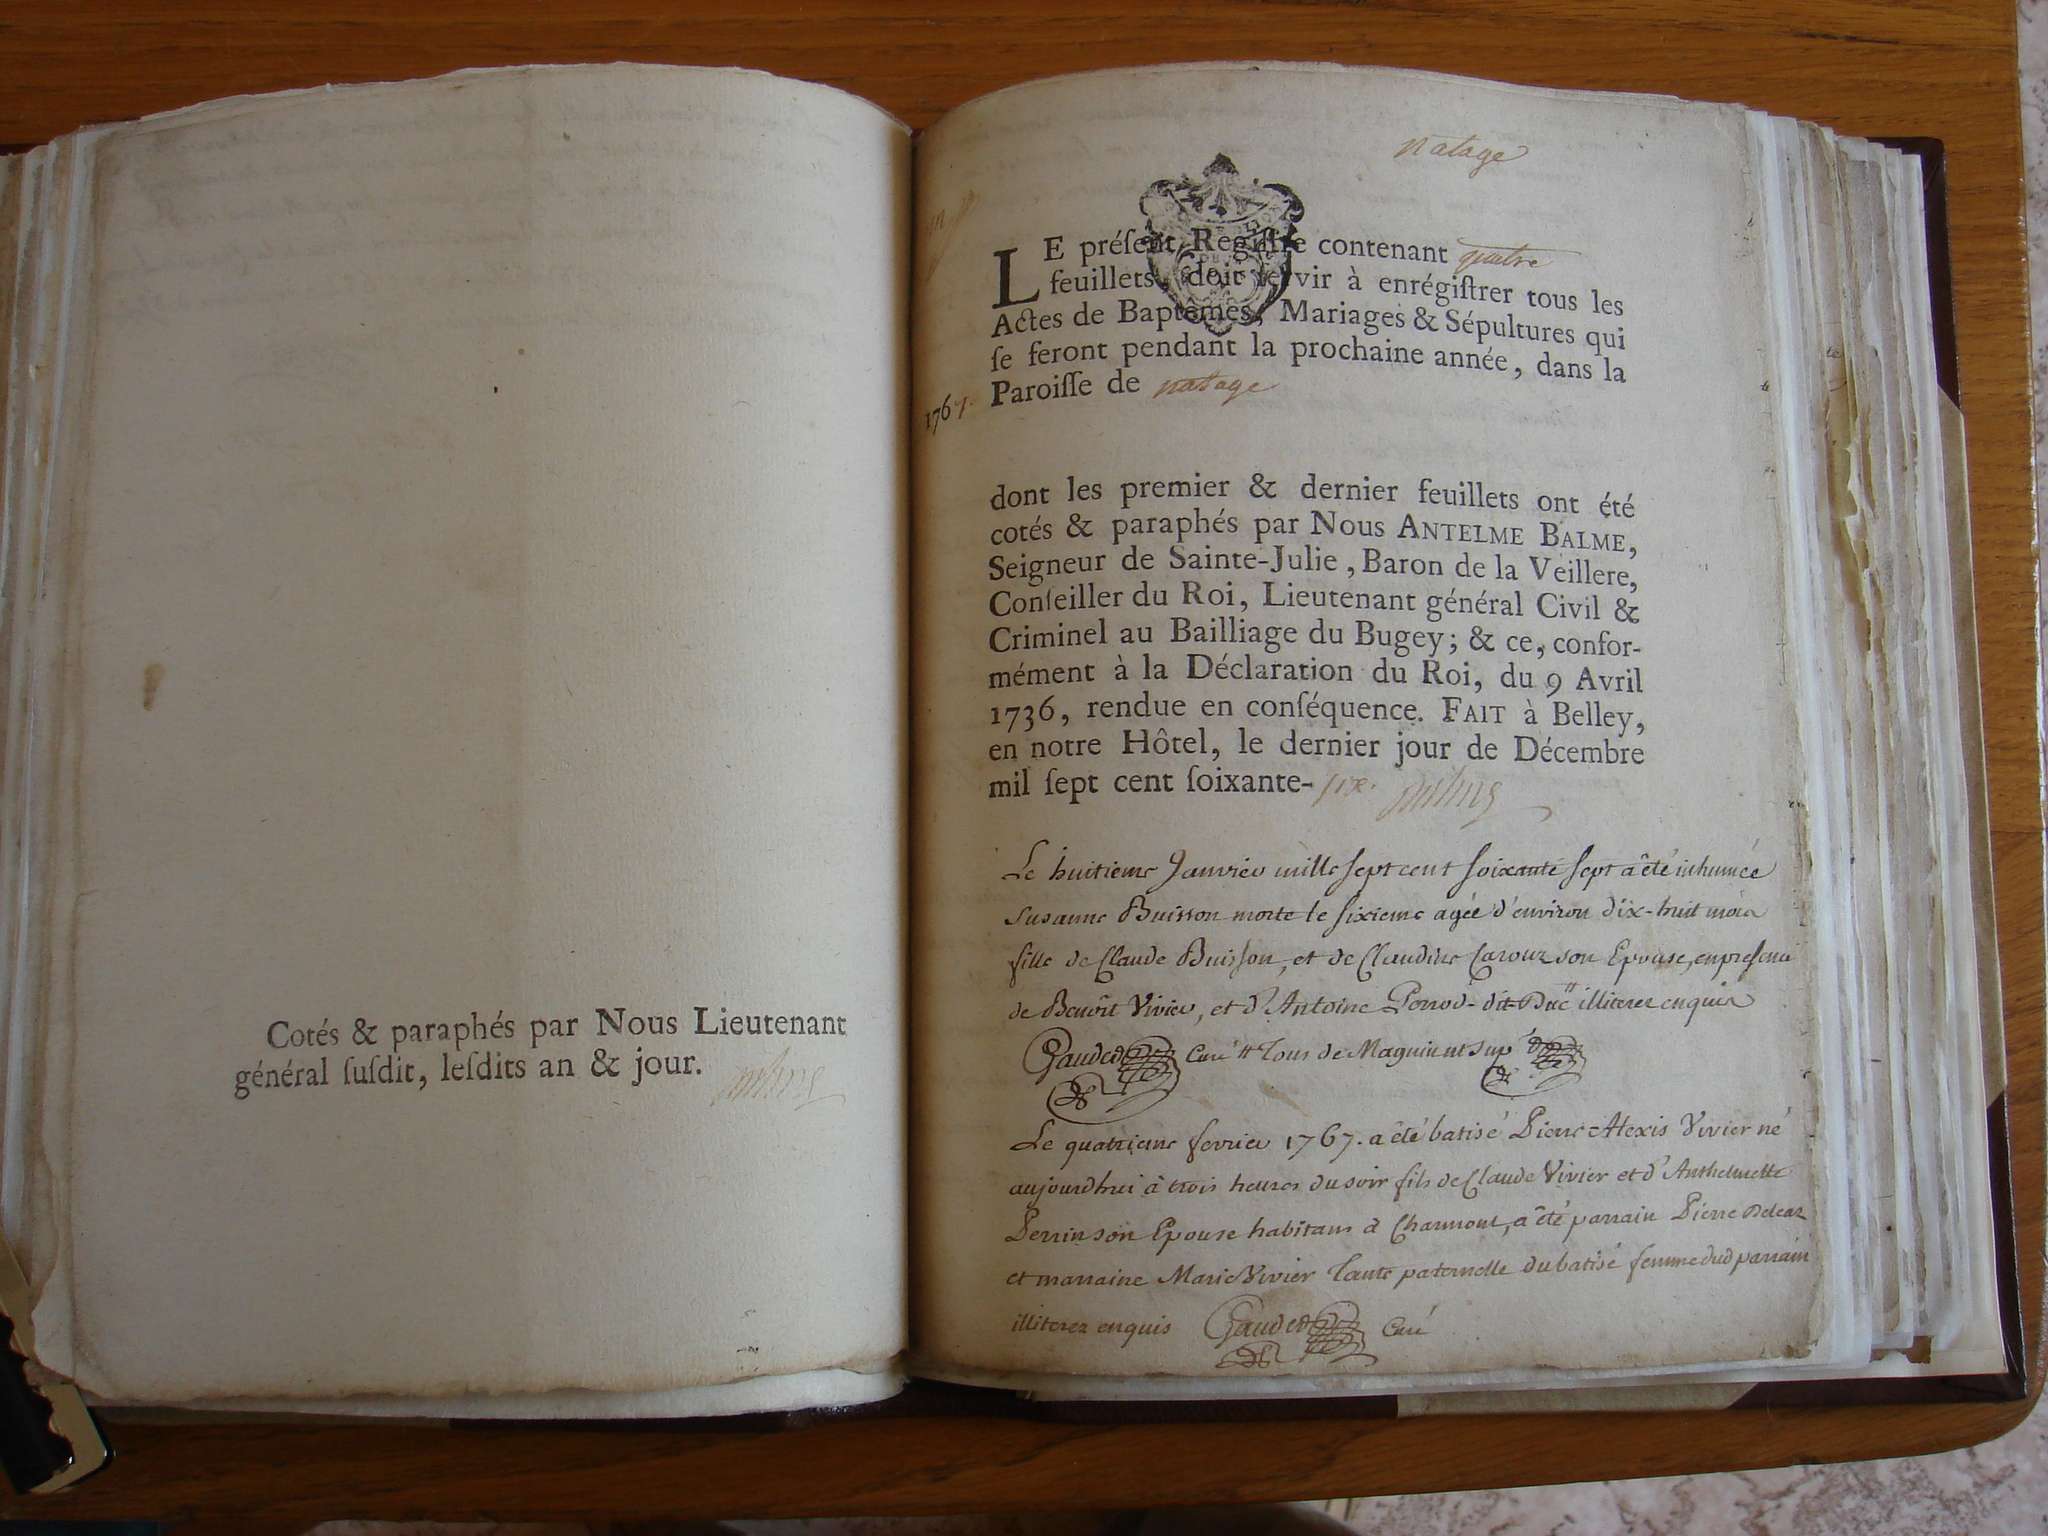 Cotés & paraphés par Nous Lieutenant
général ſuſdit, leſdits an & jour.
natage
LE préſent Regiſtre contenant quatre
feuillets, doit ſervir à enrégiſtrer tous les
Actes de Baptêmes, Mariages & Sépultures qui
ſe feront pendant la prochaine année, dans la
Paroiſſe de natage
1767.
dont les premier & dernier feuillets ont été
cotés & paraphés par Nous ANTELME BALME,
Seigneur de Sainte-Julie, Baron de la Veillere,
Conſeiller du Roi, Lieutenant général Civil &
Criminel au Bailliage du Bugey; & ce, confor-
mément à la Déclaration du Roi, du 9 Avril
1736, rendue en conſéquence. FAIT à Belley,
en notre Hôtel, le dernier jour de Décembre
mil ſept cent ſoixante-six.
Le huitieme Janvier mille sept cent soixante sept a êté inhumée
Susanne Buisson morte le sixieme agée d'environ dix-huit mois
fille de Claude Buisson, et de Claudine son Epouse, en presence
de Benoît Vivier, et d'Antoine dit Duc illiterez enquis
Gauded Curé Tous de
Le quatrieme fevrier 1767. a êté batisé Pierre Alexis Vivier né
aujourdhui à trois heures du soir fils de Claude Vivier et d'Anthelmette
Perrin son Epouse habitans à Charmont, a êté parrain Pierre
et marraine Marie Vivier Tante paternelle du batisé femme dud parrain
illiterez enquis Gauded Curé